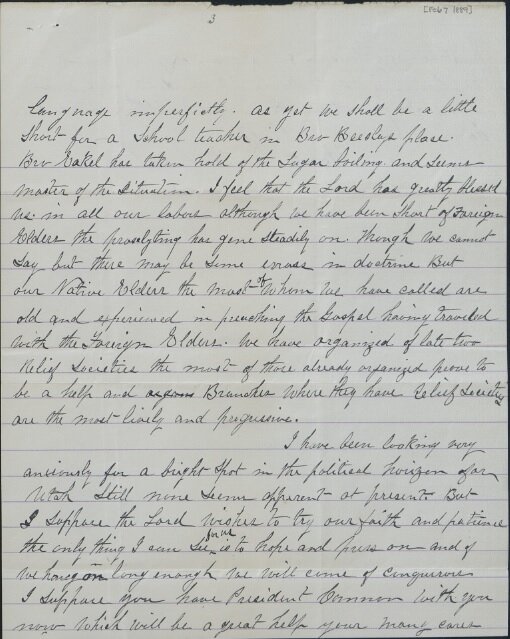 [Feb 7 1889]
3
language imperfictly. as yet we shall be a little
short for a School teacher in Bro Beesleys place.
Bro Eakel has taken hold of the Sugar boiling and seems
master of the situation. I feel that the Lord has greatly blessed
us in all our labors although we have been short of Foreign
Elders the proselyting has gone steadily on. Though we cannot
say but there may be some errors in doctrine But
our Native Elders the most of whom we have called are
old and experienced in preaching the Gospel having traveled
with the Foreign Elders. We have organized of late two
Relief Societies the most of those already organized prove to
be a help and Branches where they have Relief Societies
are the most lively and progressive.
I have been looking very
anxiously for a bright spot in the political horizen for
Utah Still none seems apparent at present. But
I suppose the Lord wishes to try our faith and patience
the only thing I can see for us is to hope and press on and if
we hang on long enough we will come of conquerors
I suppose you have President Cannon with you
now which will be a great help your many cares